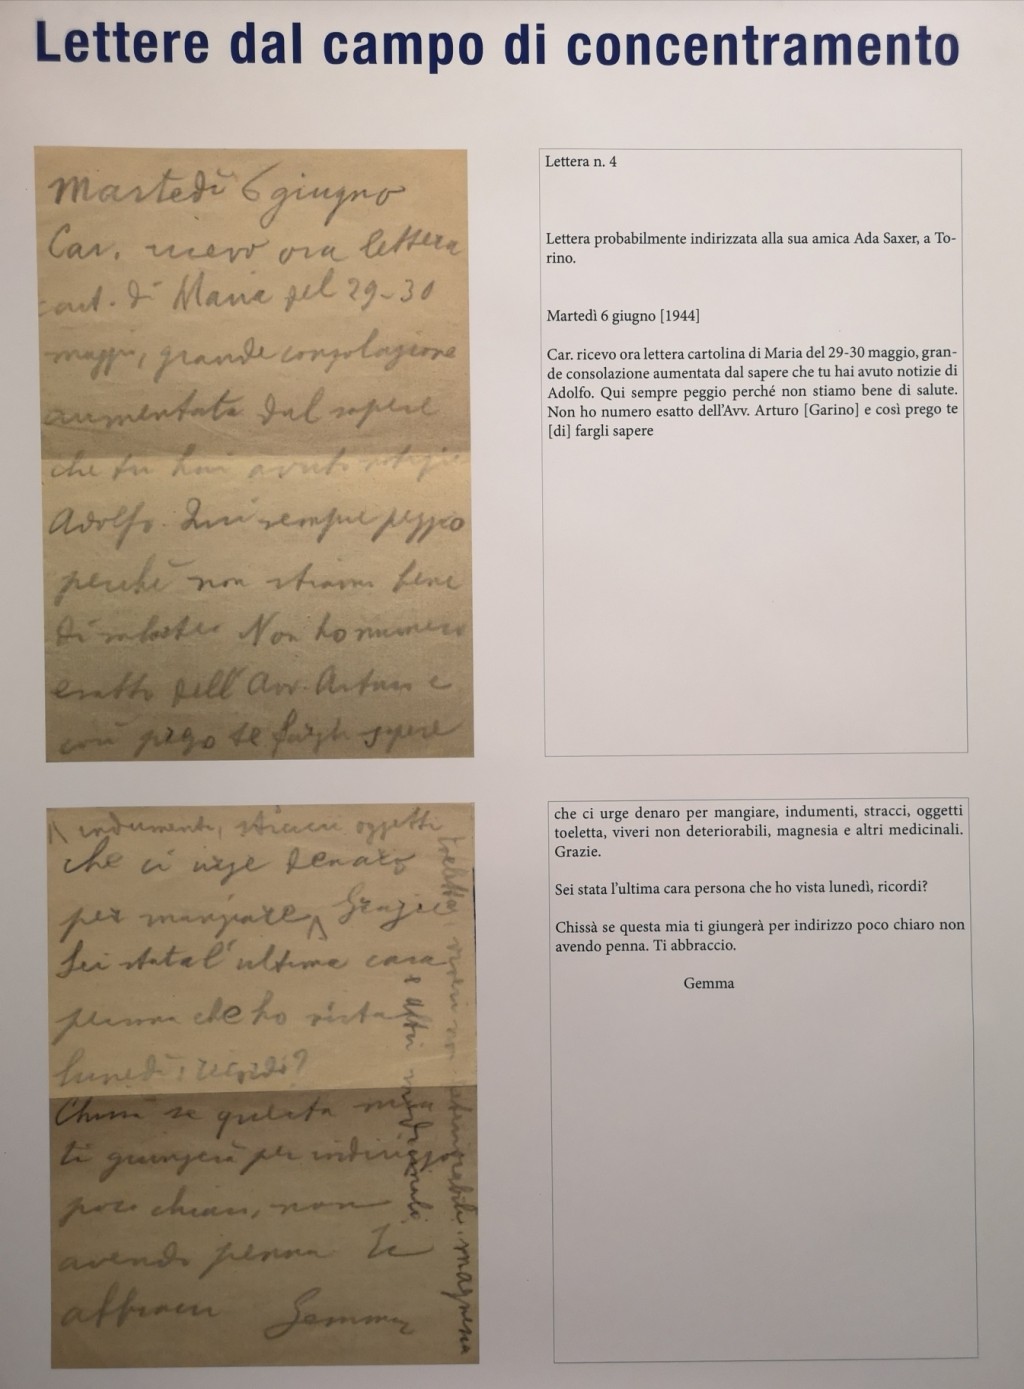 Lettere dal campo di concentramento
Martedì 6 giugno
Car. ricevo ora lettera
cart. di Maria del 29-30
maggio, grande consolazione
aumentata dal sapere
che tu hai avuto notizie
Adolfo. Qui sempre peggio
perchè non stiamo bene
di salute. Non ho numero
esatto dell'Avv. Arturo e
così prego te fargli sapere
Lettera n. 4
Lettera probabilmente indirizzata alla sua amica Ada Saxer, a To-
rino.
Martedì 6 giugno [1944]
Car. ricevo ora lettera cartolina di Maria del 29-30 maggio, gran-
de consolazione aumentata dal sapere che tu hai avuto notizie di
Adolfo. Qui sempre peggio perché non stiamo bene di salute.
Non ho numero esatto dell'Avv. Arturo [Garino] e così prego te
[di] fargli sapere
indumenti, stracci oggetti
toeletta, viveri non deteriorabili, magnesia
e altri medicinali
che ci urge denaro
per mangiare, Grazie
Sei stata l'ultima cara
persona che ho vista
lunedì, ricordi?
Chissà se questa mia
ti giungerà per indirizzo
poco chiaro, non
avendo penna Ti
abbraccio Gemma
che ci urge denaro per mangiare, indumenti, stracci, oggetti
toeletta, viveri non deteriorabili, magnesia e altri medicinali.
Grazie.
Sei stata l'ultima cara persona che ho vista lunedì, ricordi?
Chissà se questa mia ti giungerà per indirizzo poco chiaro non
avendo penna. Ti abbraccio.
Gemma